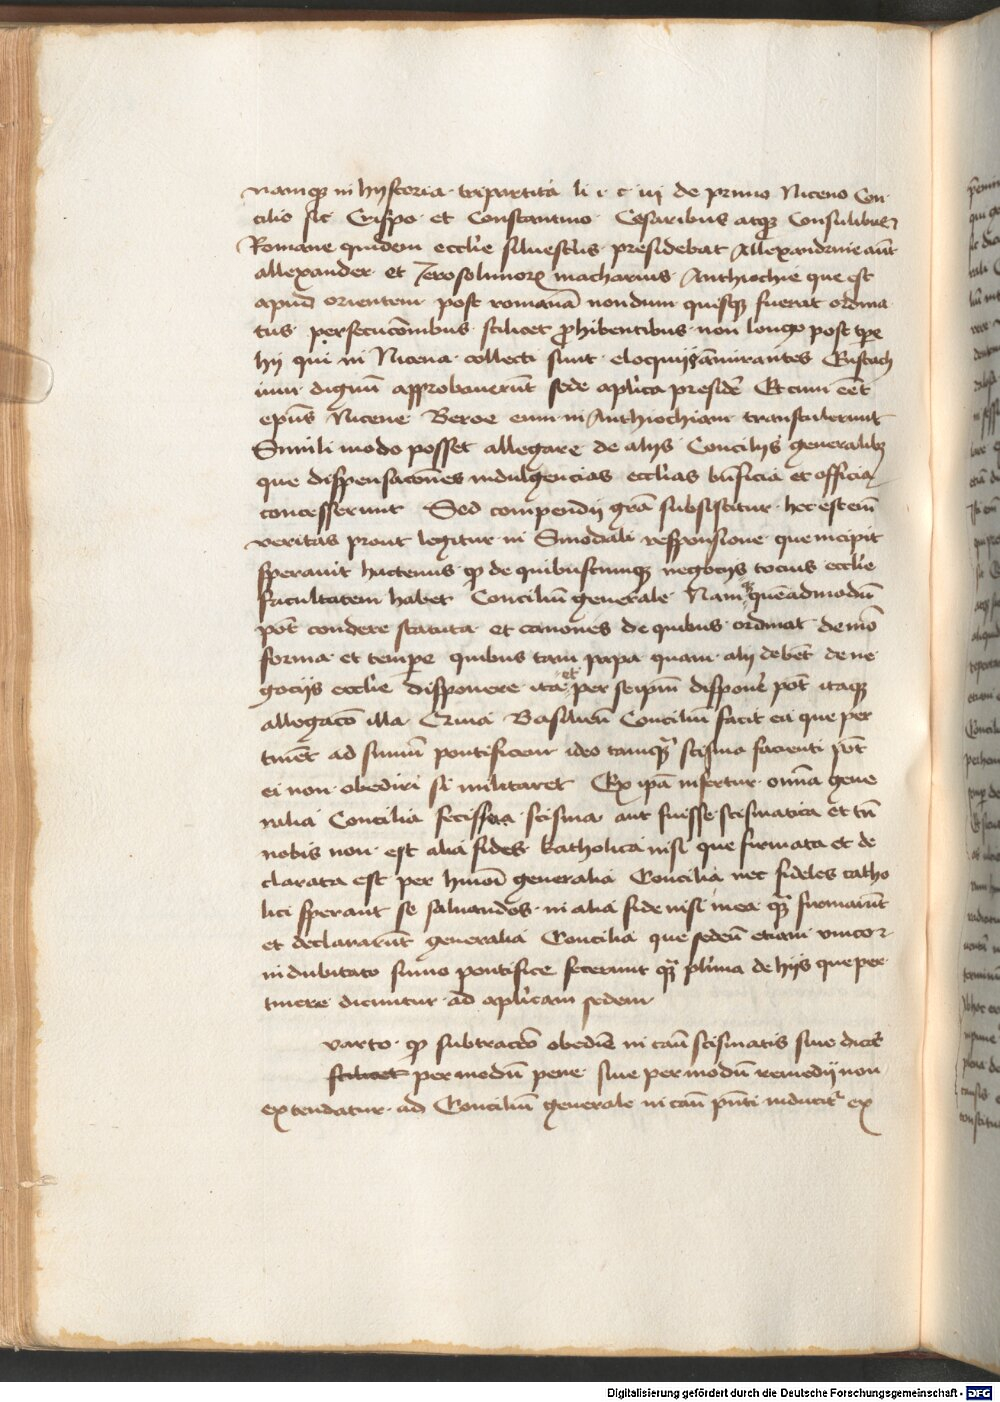 namqꝫ in hystoria · tripartita li i · c iij de primo Niceno Con
cilio sic Crispo et Constantino Cesaribus atqꝫ Consulibus
Romane quidem ecclie silvestus presidebat Allexandrie aut̄
allexander et Jerosolimoꝝ macharius Anthiochie que est
apud orientem post romanā nondum quisqꝫ fuerat ordina
tus persecucōnibus scilicet ꝓhibentibus non longo post tꝑe
hij qui in Nicena collecti sunt eloquijs āmirantes Eustach
ium dignū approbaverūt sede aplica presidē Et cum eēt
epūs Nicene Beroe eum in Anthiochiam transtulerunt
Simili modo posset allegare de alijs Concilijs generalibꝫ
que dispensacōnes indulgencias ecclias bn̄ficia et officia
concesserunt Sed compendij grā subsistitur hec est em̄
veritas prout legitur in Sinodali responsione que incipit
speravit hactenus ꝙ de quibuscumqꝫ negocijs tocius ecclie
facultatem habet Conciliū generale Nam quēadmodū
pōt condere statuta et canones de quibus ordinat de mō
forma et tempe quibus tam papa quam alij debēt de ne
gocijs ecclie disponere ita et per seipm̄ disponē pōt itaqꝫ
allegacō illa Basilien̄ Conciliū facit ea que per
tinēt ad sum̄ū pontificem ideo tamqꝫ scisma facienti pōt
ei non obediri si militaret Ex ipā infertur om̄ia gene
ralia Concilia fecisse scisma aut fuisse scismatica et tn̄
nobis non est alia fides katholica nisi que firmata et de
clarata est per hmōi generalia Concilia nec fideles catho
lici sperant se salvandos in alia fide nisi in ea quā firmarūt
et declararūt generalia Concilia que sedeñ etiam unico
indubitato sum̄o pontifice fecerunt plima de hijs que per
tinere dicuntur ad aplicam sedem
varto ꝙ subtraccō obedīe in caū scismatis sive dicat̄
scilicet per modū pene sive per modū remedij non
extendatur ad Conciliū generale in caū pn̄ti inducit̄ ex
Digitalisierung gefördert durch die Deutsche Forschungsgemeinschaft - DFG